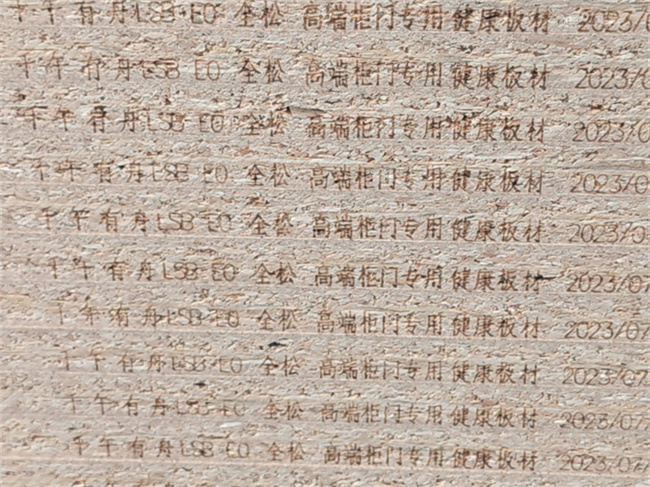 千年有舟LSB-E0 全松 高端柜门专用健康板材 2023/0
千年有舟LSB-E0 全松 高端柜门专用健康板材 2023/0
千年有舟LSB-E0 全松 高端柜门专用健康板材 2023/0
千年有舟LSB-E0 全松 高端柜门专用健康板材 2023/0
千年有舟LSB-E0 全松 高端柜门专用健康板材 2023/0
千年有舟LSB-E0 全松 高端柜门专用健康板材 2023/07
千年有舟LSB-E0 全松 高端柜门专用健康板材 2023/07
千年有舟LSB-E0 全松 高端柜门专用健康板材 2023/07
千年有舟LSB-E0 全松 高端柜门专用健康板材 2023/07
千年有舟LSB-E0 全松 高端柜门专用健康板材 2023/07